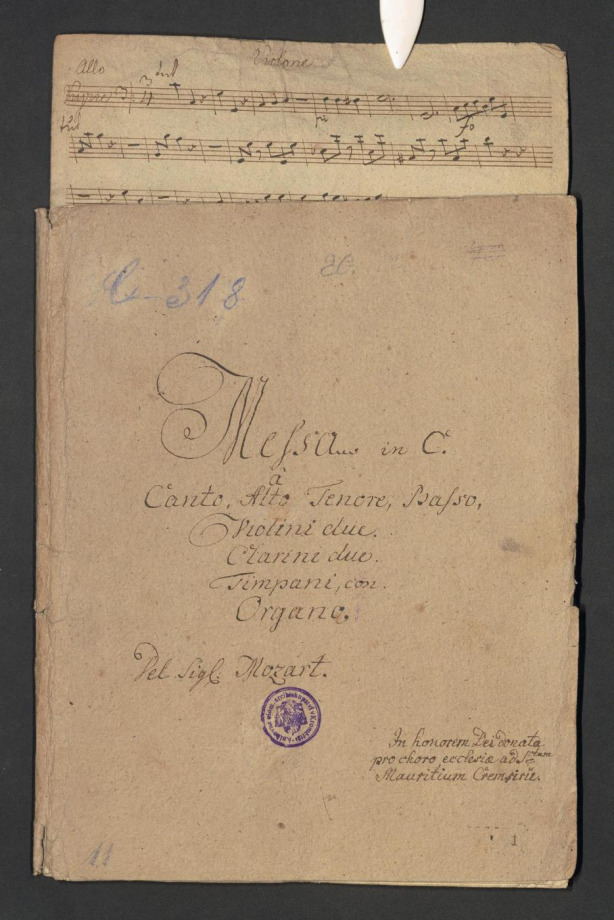 Violone
Allo
tut
Kyrie
tut
p
fo
C-318
Messa in C.
à
Canto, Alto Tenore, Basso,
Violini due.
Clarini due.
Timpani, con.
Organo.
Del Sigl: Mozart.
In honorem Dei donata
pro choro ecclesiæ ad S:ctum
Mauritium Cremsirii.
1
11